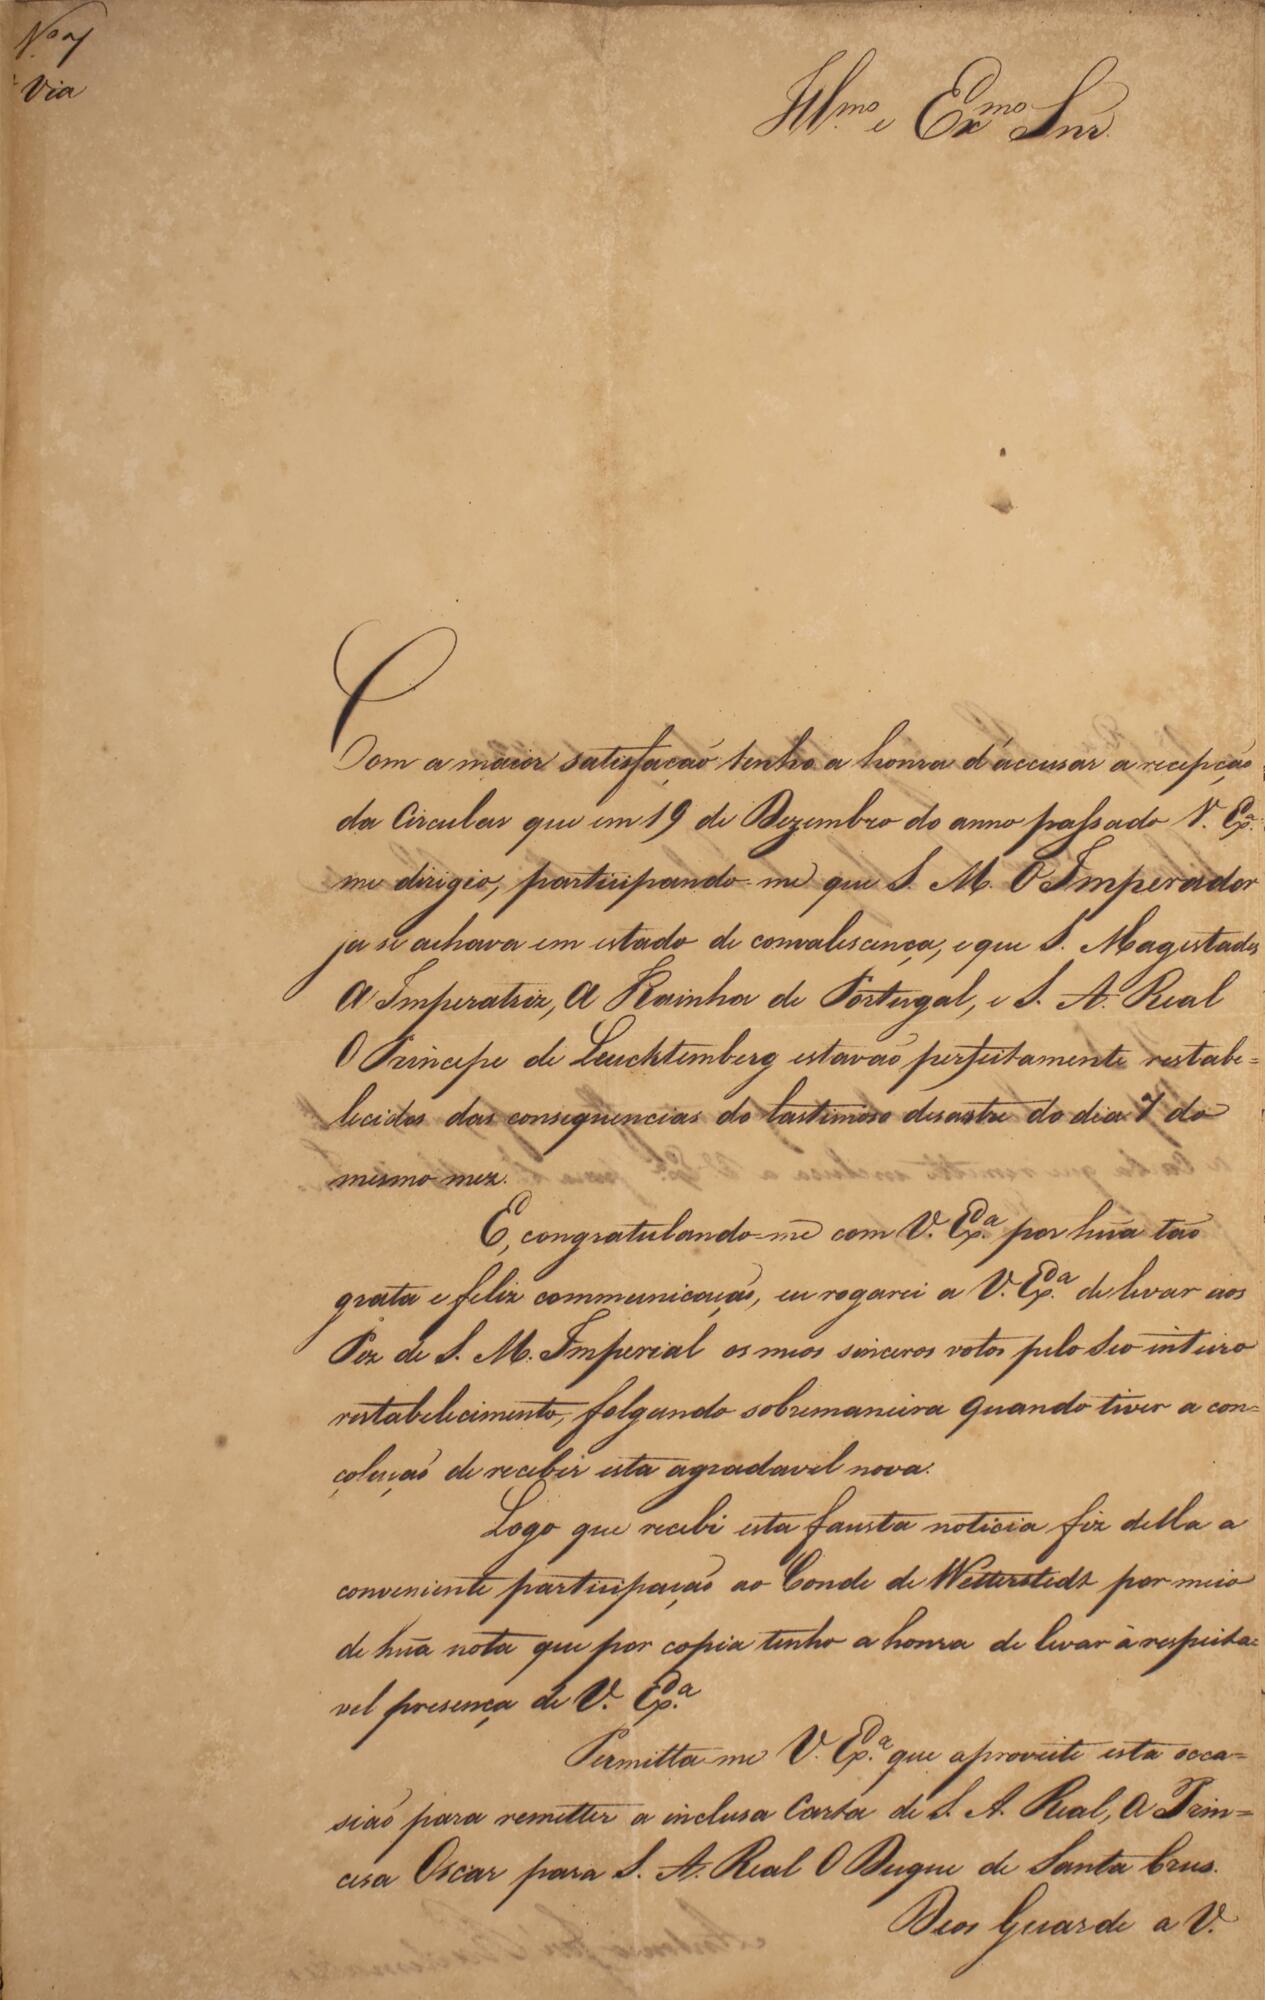 N.o 7
Via
Ill.mo e Ex.mo Snr.
Com a maior satisfação tenho a honra d'accusar a recepção
da Circular que em 19 de Dezembro do anno passado V. Ex.a
me dirigio, participando-me que S. M. O Imperador
ja se achava em estado de convalescença, e que S. Magestades
A Imperatriz, A Rainha de Portugal, e S. A. Real
O Principe de Leuchtemberg estavão perfeitamente restabe=
lecidos das consequencias do lastimoso desastre do dia 7 do
mesmo mez.
E, congratulando-me com V. Ex.a por hũa tão
grata e feliz communicação, eu rogarei a V. Ex.a de levar aos
Pez de S. M. Imperial os meos sinceros votos pelo Seo inteiro
restabelecimento, folgando sobremaneira quando tiver a con=
çolação de receber esta agradavel nova.
Logo que recebi esta fausta noticia fiz della a
conveniente participação ao Conde de Wetterstedt por meio
de hũa nota que por copia tenho a honra de levar à respeita=
vel presença de V. Ex.a
Permitta-me V. Ex.a que aproveite esta occa=
sião para remetter a inclusa Carta de S. A. Real, A Prin=
ceza Oscar para S. A. Real O Duque de Santa Crus.
Deos Guarde a V.